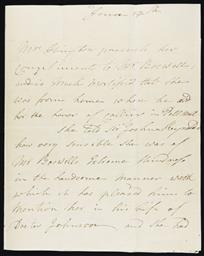 Mrs Abington presents her
Compliments to Mr Boswell
and is much mortified that she
was from home when he did
her the honor of calling in Pall Mall
She told Sr Joshua Reynolds
how very sensible she was of
Mr Boswells Extreme kindness
in the handsome manner with
which it has pleased him to
Mention her in his Life of
Doctor Johnson and she had